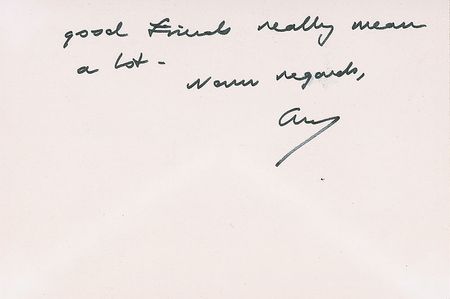 good friends really mean
a lot -
Warm regards,